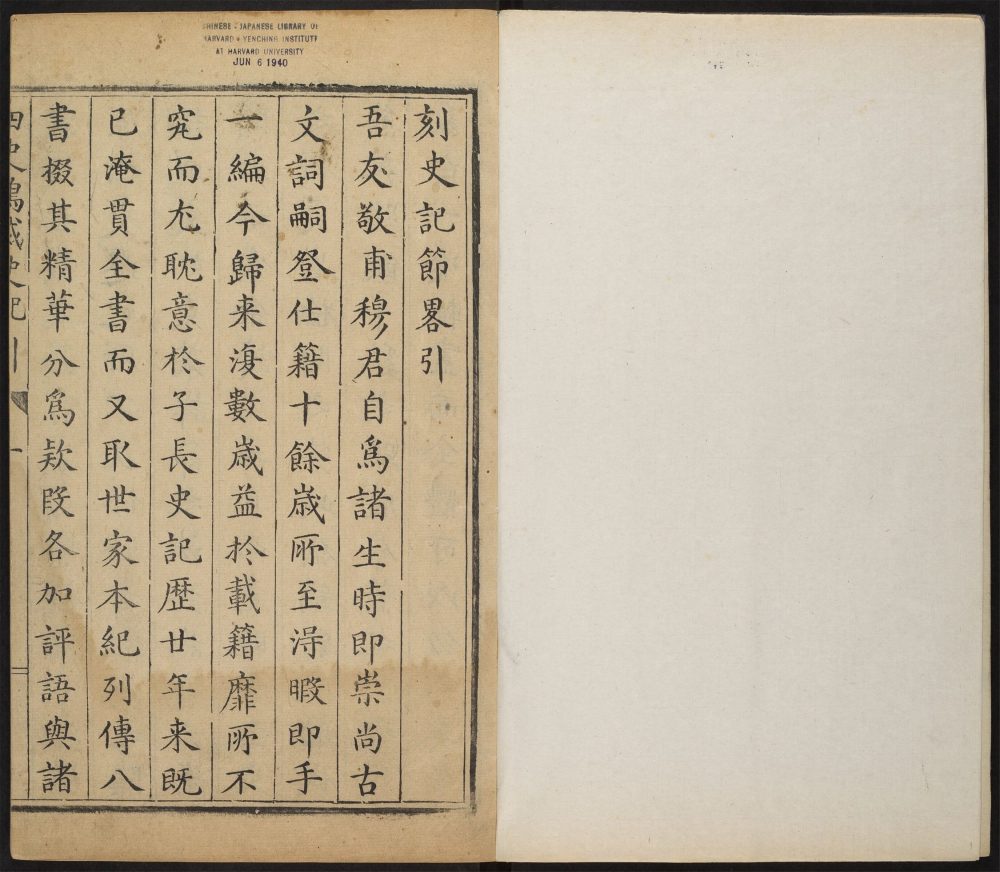 CHINESE - JAPANESE LIBRARY OF
HARVARD - YENCHING INSTITUTE
AT HARVARD UNIVERSITY
JUN 6 1940
刻史記節畧引
吾友敬甫穆君自爲諸生時即崇尚古
文詞嗣登仕籍十餘歲所至淂暇即手
一編今歸来復數歳益扵載籍靡所不
究而尤耽意扵子長史記歴廿年来既
已淹貫全書而又取世家本紀列傳八
書掇其精華分爲欵段各加評語與諸
四史鴻裁史記引 一